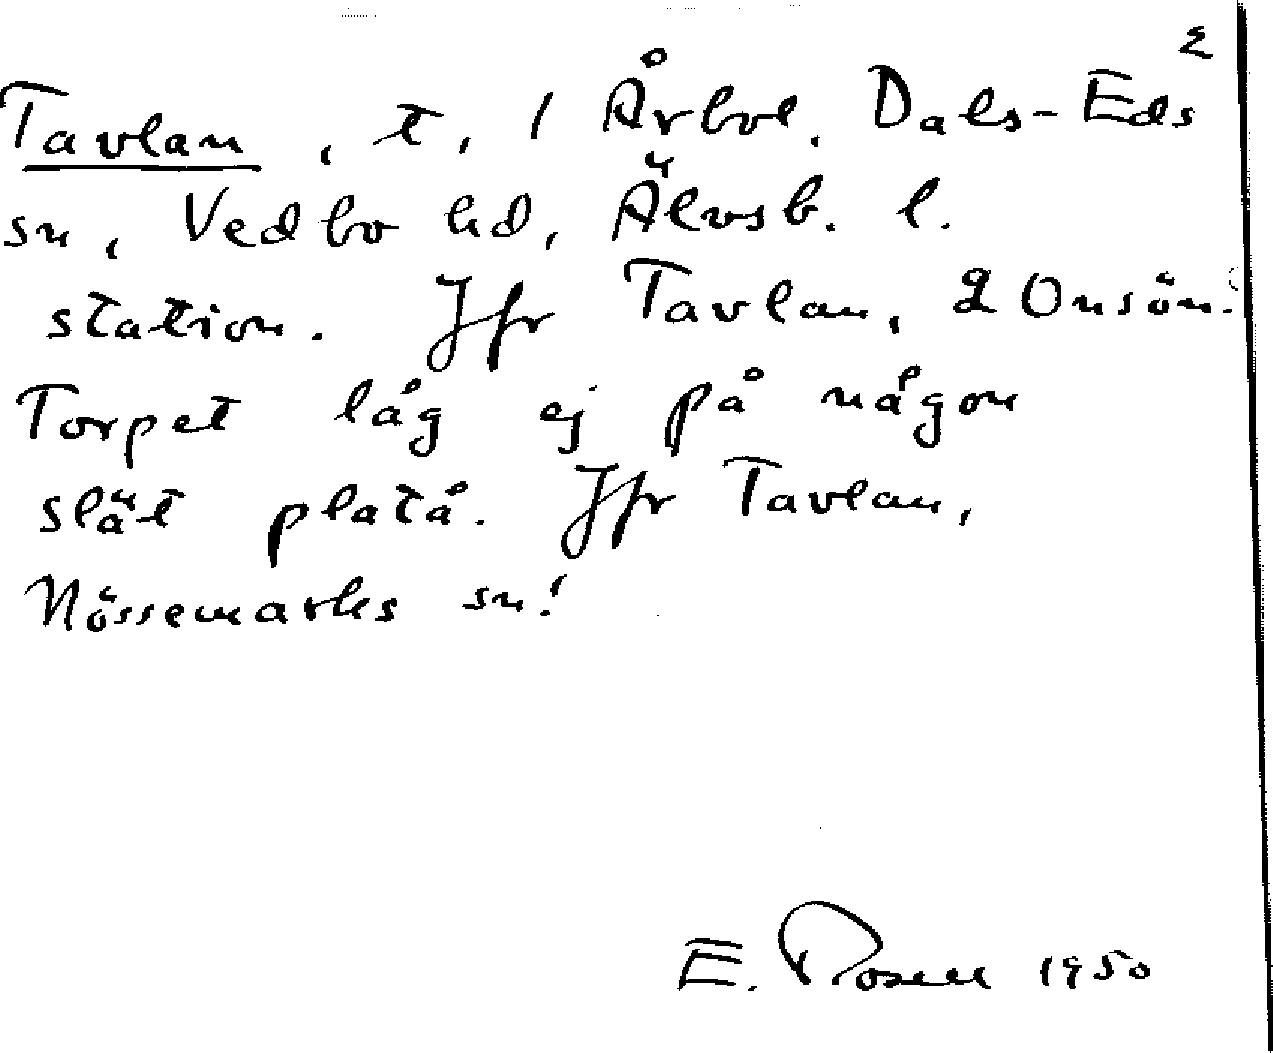 2
Tavlan, t, 1 Årbol. Dals-Eds
sn, Vedbo hd, Älvsb. l.
station. Jfr Tavlan, 2 Onsön.
Torpet låg ej på någon
slät platå. Jfr Tavlan,
Nössemarks sn!
E. Rosell 1950